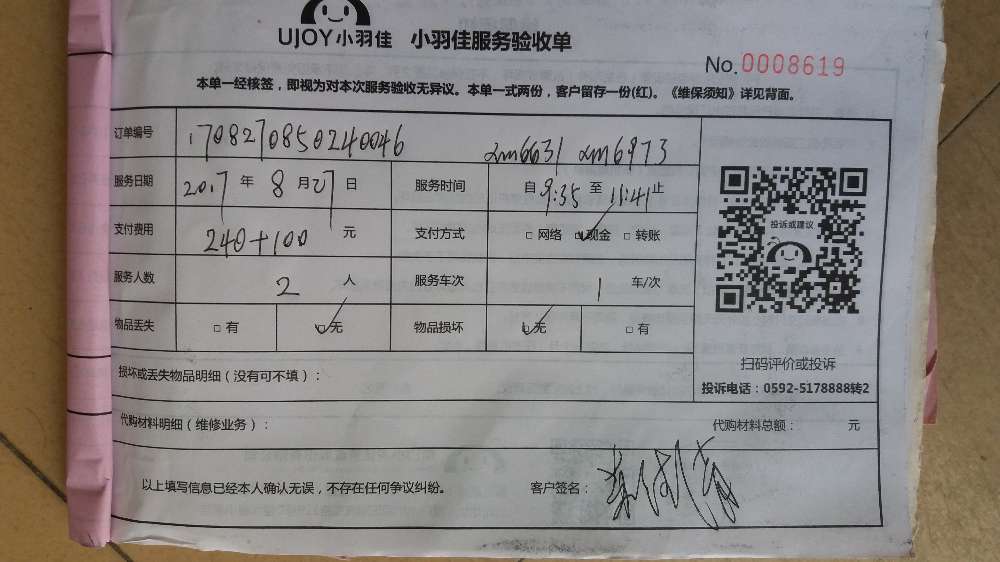 UJOY小羽佳 小羽佳服务验收单
No.0008619
本单一经核签，即视为对本次服务验收无异议。本单一式两份，客户留存一份(红)。《维保须知》详见背面。
订单编号 1708270850240046 xm6631 xm6973
服务日期 2017 年 8 月 27 日 服务时间 自 9:35 至 11:41 止
支付费用 240+100 元 支付方式 □ 网络 ☑ 现金 □ 转账
服务人数 2 人 服务车次 1 车/次
物品丢失 □ 有 ☑ 无 物品损坏 ☑ 无 □ 有
投诉或建议
扫码评价或投诉
投诉电话：0592-5178888转2
损坏或丢失物品明细（没有可不填）：
代购材料明细（维修业务）： 代购材料总额： 元
以上填写信息已经本人确认无误，不存在任何争议纠纷。 客户签名：